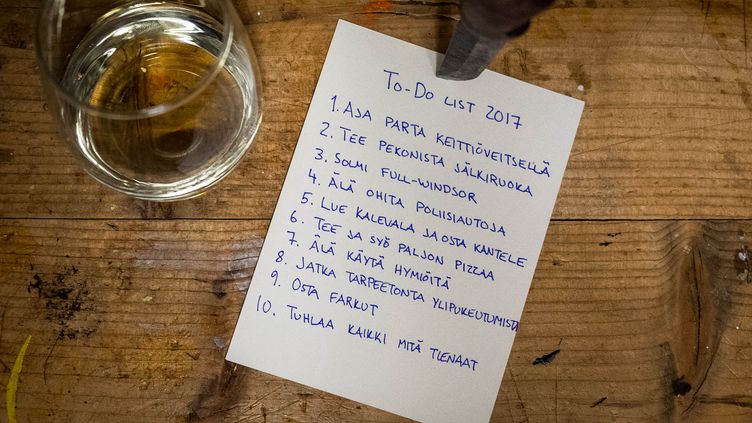 To-Do LIST 2017
1. AJA PARTA KEITTIÖVEITSELLÄ
2. TEE PEKONISTA JÄLKIRUOKA
3. SOLMI FULL-WINDSOR
4. ÄLÄ OHITA POLIISIAUTOJA
5. LUE KALEVALA JA OSTA KANTELE
6. TEE JA SYÖ PALJON PIZZAA
7. ÄLÄ KÄYTÄ HYMIÖITÄ
8. JATKA TARPEETONTA YLIPUKEUTUMISTA
9. OSTA FARKUT
10. TUHLAA KAIKKI MITÄ TIENAAT